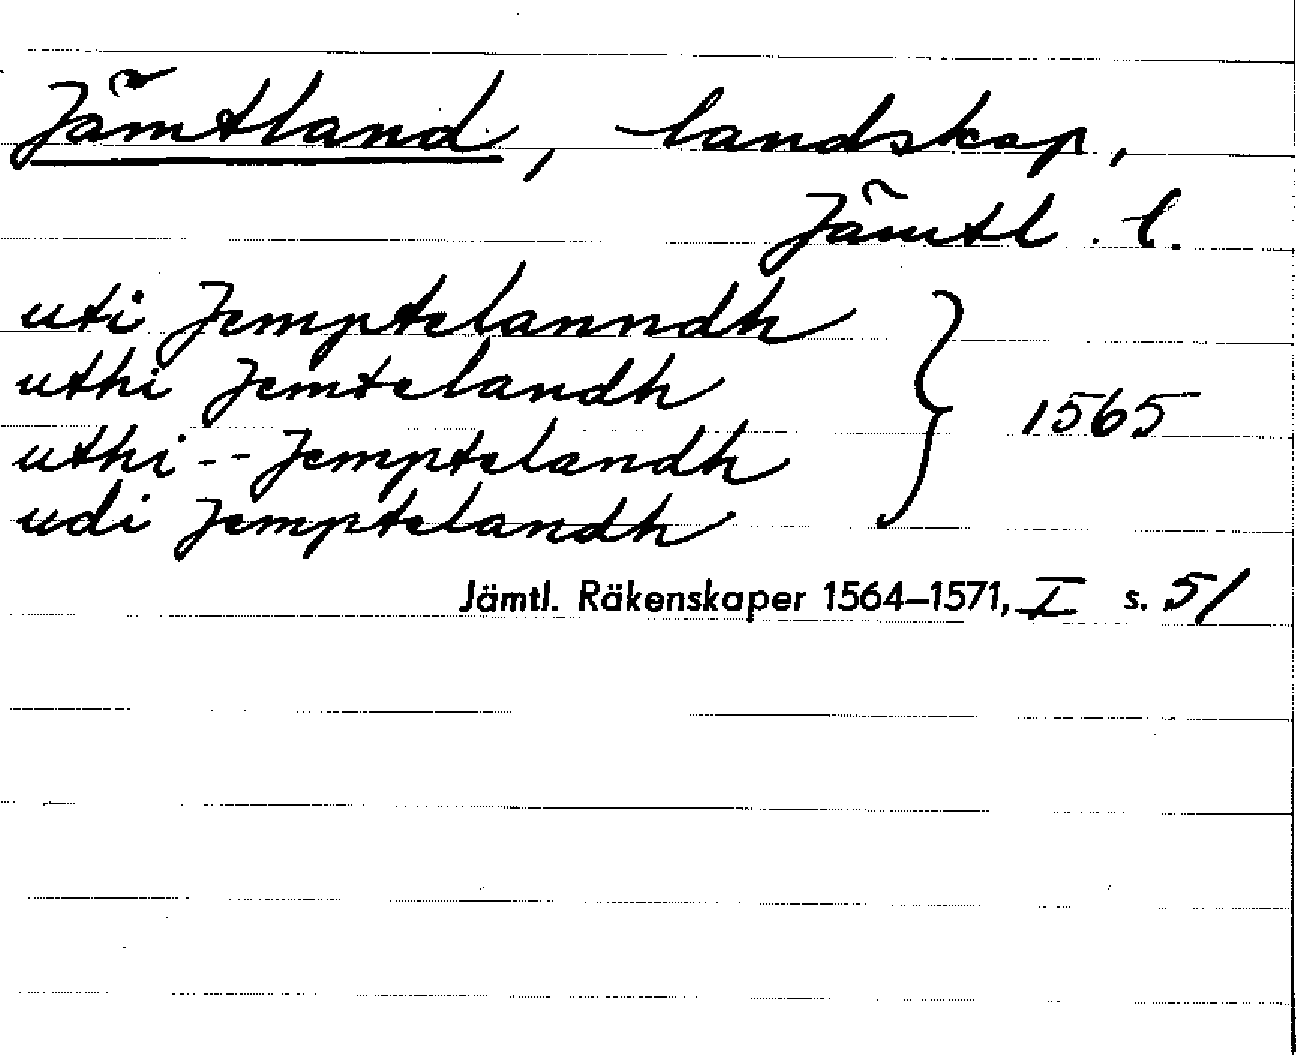 Jämtland, landskap,
Jämtl. l.
uti Jemptelanndh
uthi Jemtelandh
uthi -- Jemptelandh
udi Jemptelandh
1565
Jämtl. Räkenskaper 1564–1571, I s. 51